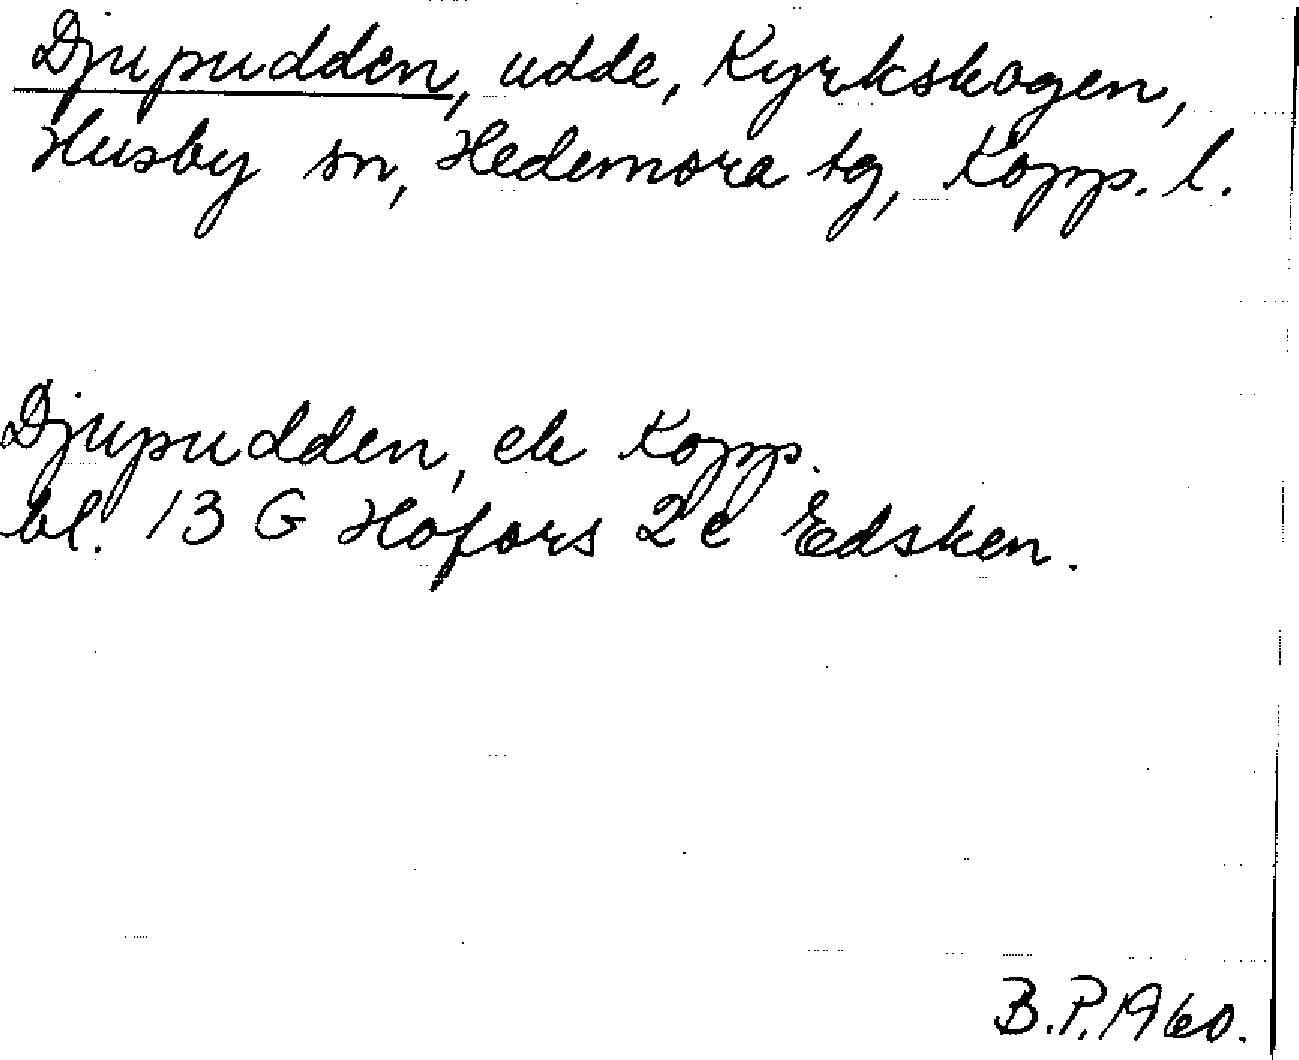 Djupudden, udde, Kyrkskogen,
Husby sn, Hedemora tg, Kopp. l.
Djupudden, ek Kopp.
bl. 13 G Hofors 2c Edsken.
B.P. 1960.